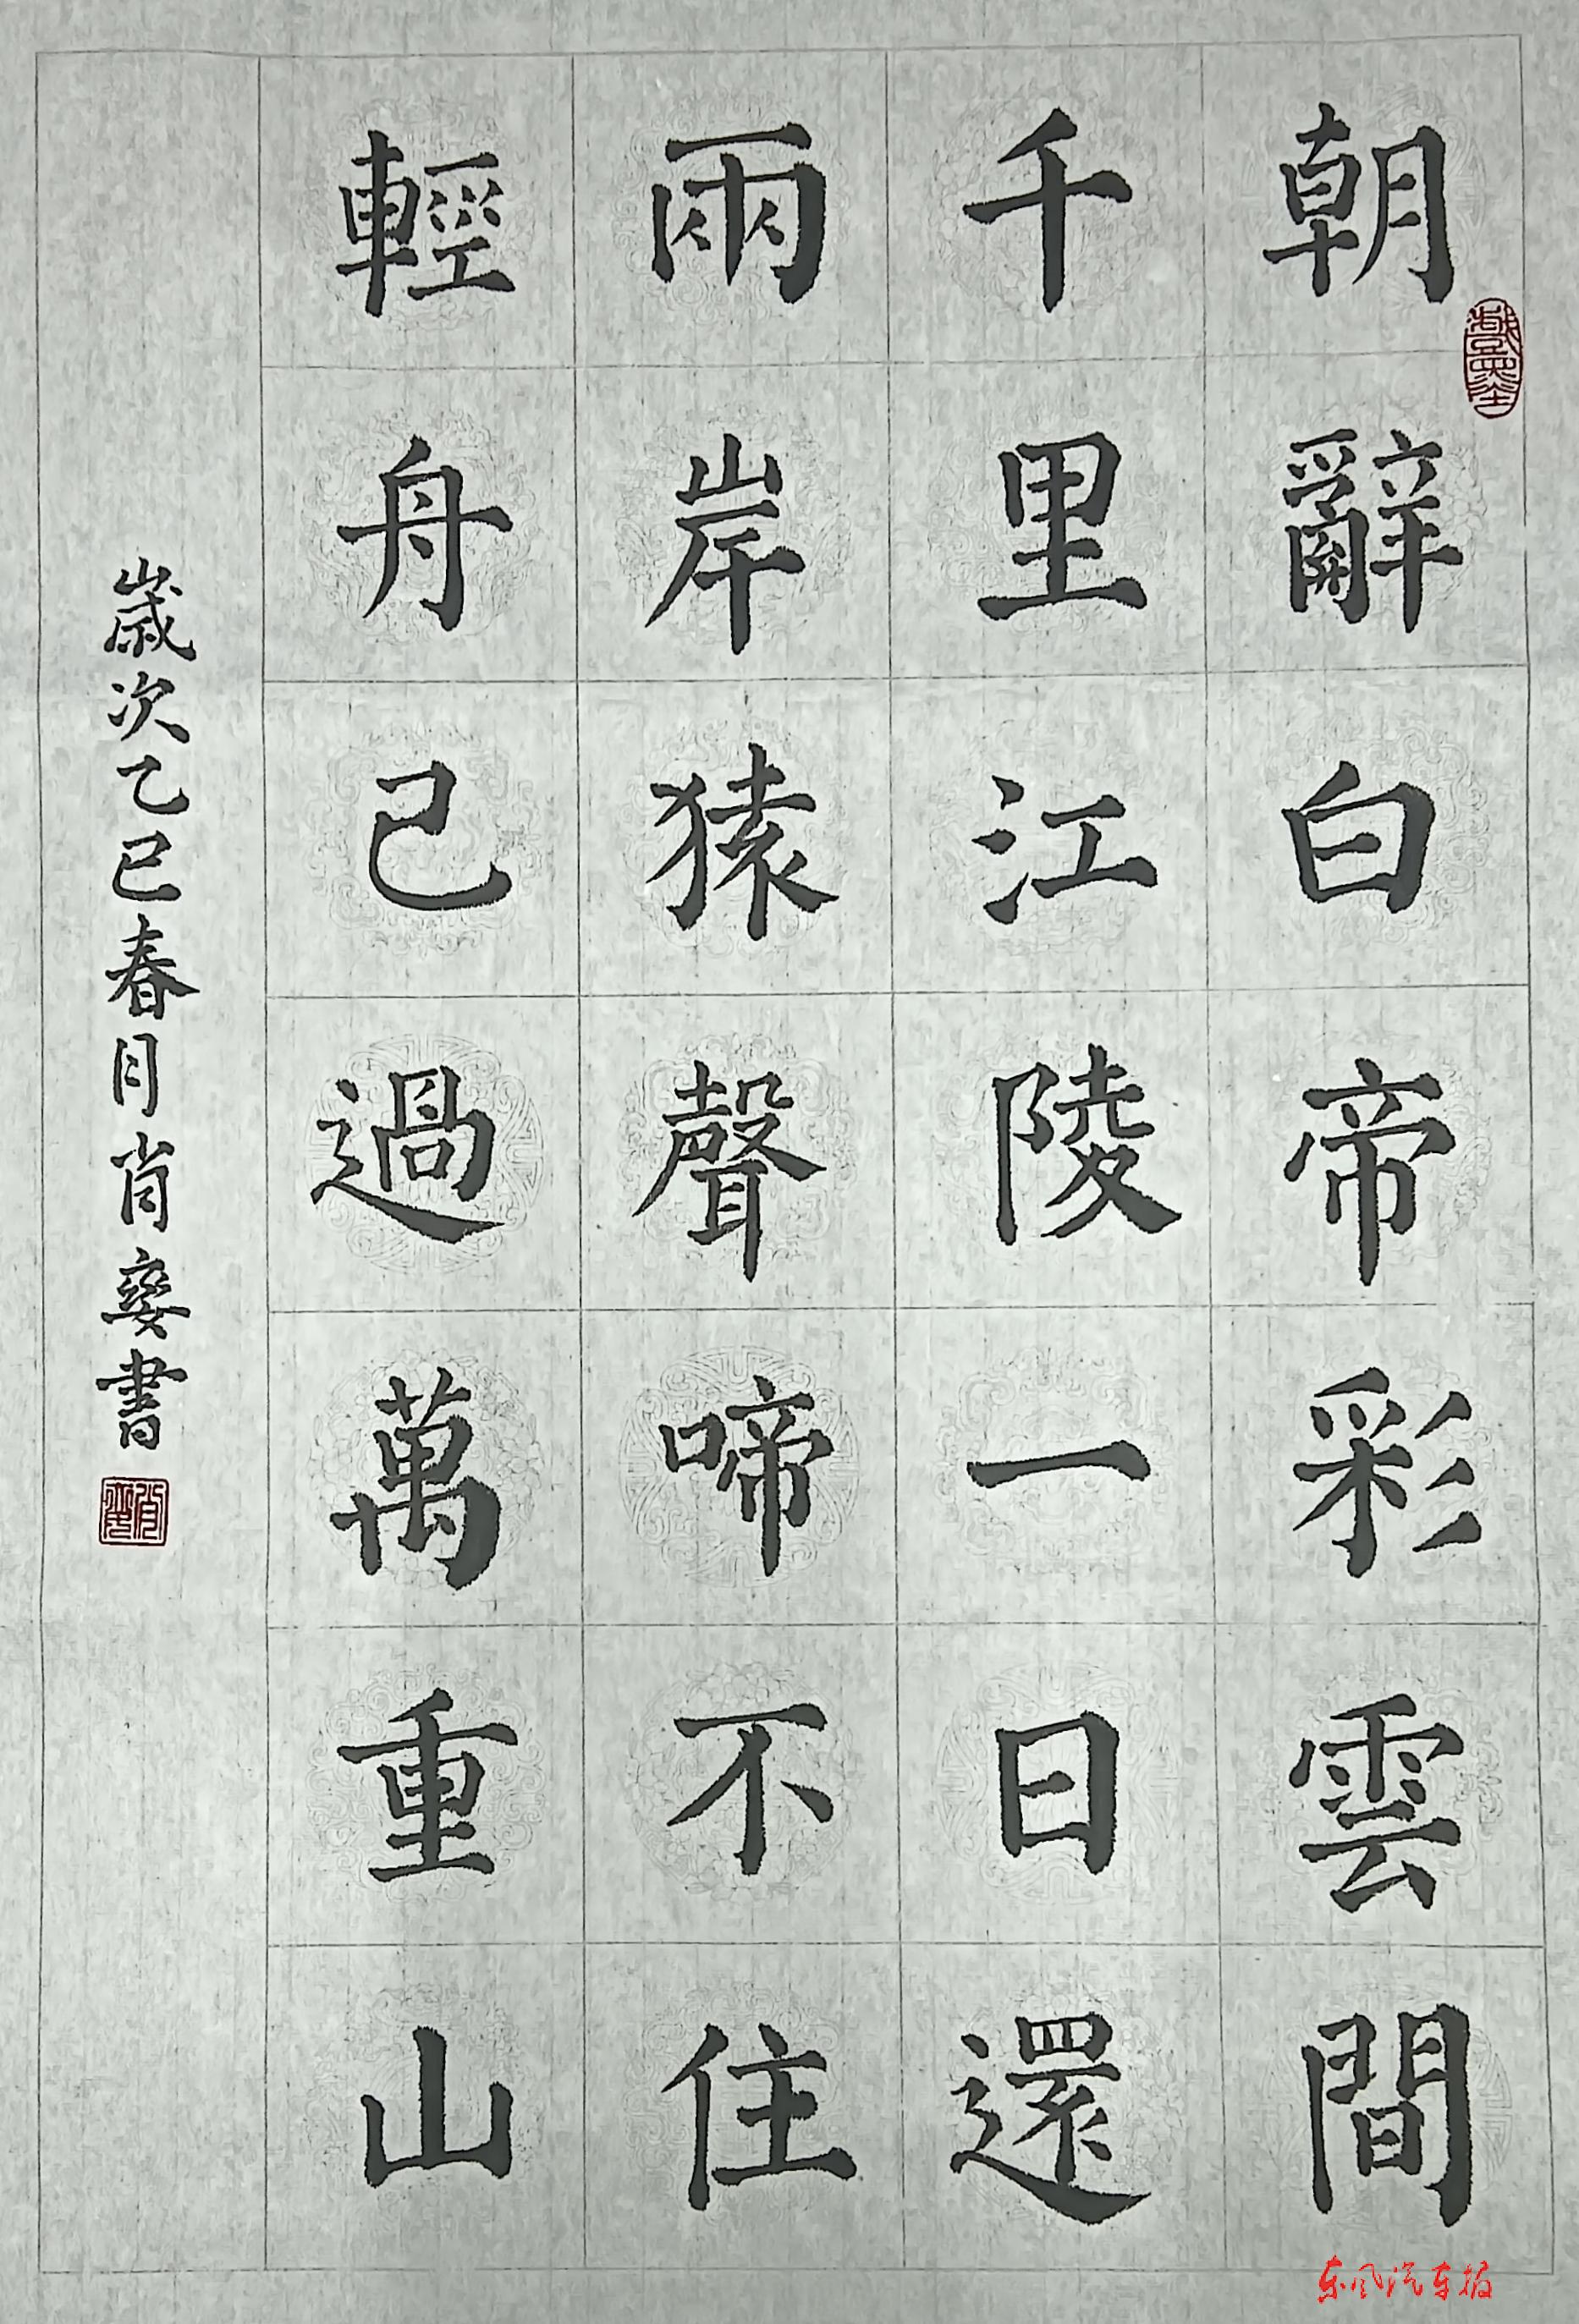 朝辭白帝彩雲間
千里江陵一日還
兩岸猿聲啼不住
輕舟已過萬重山
歲次乙巳春月肖娈書
东风汽车报